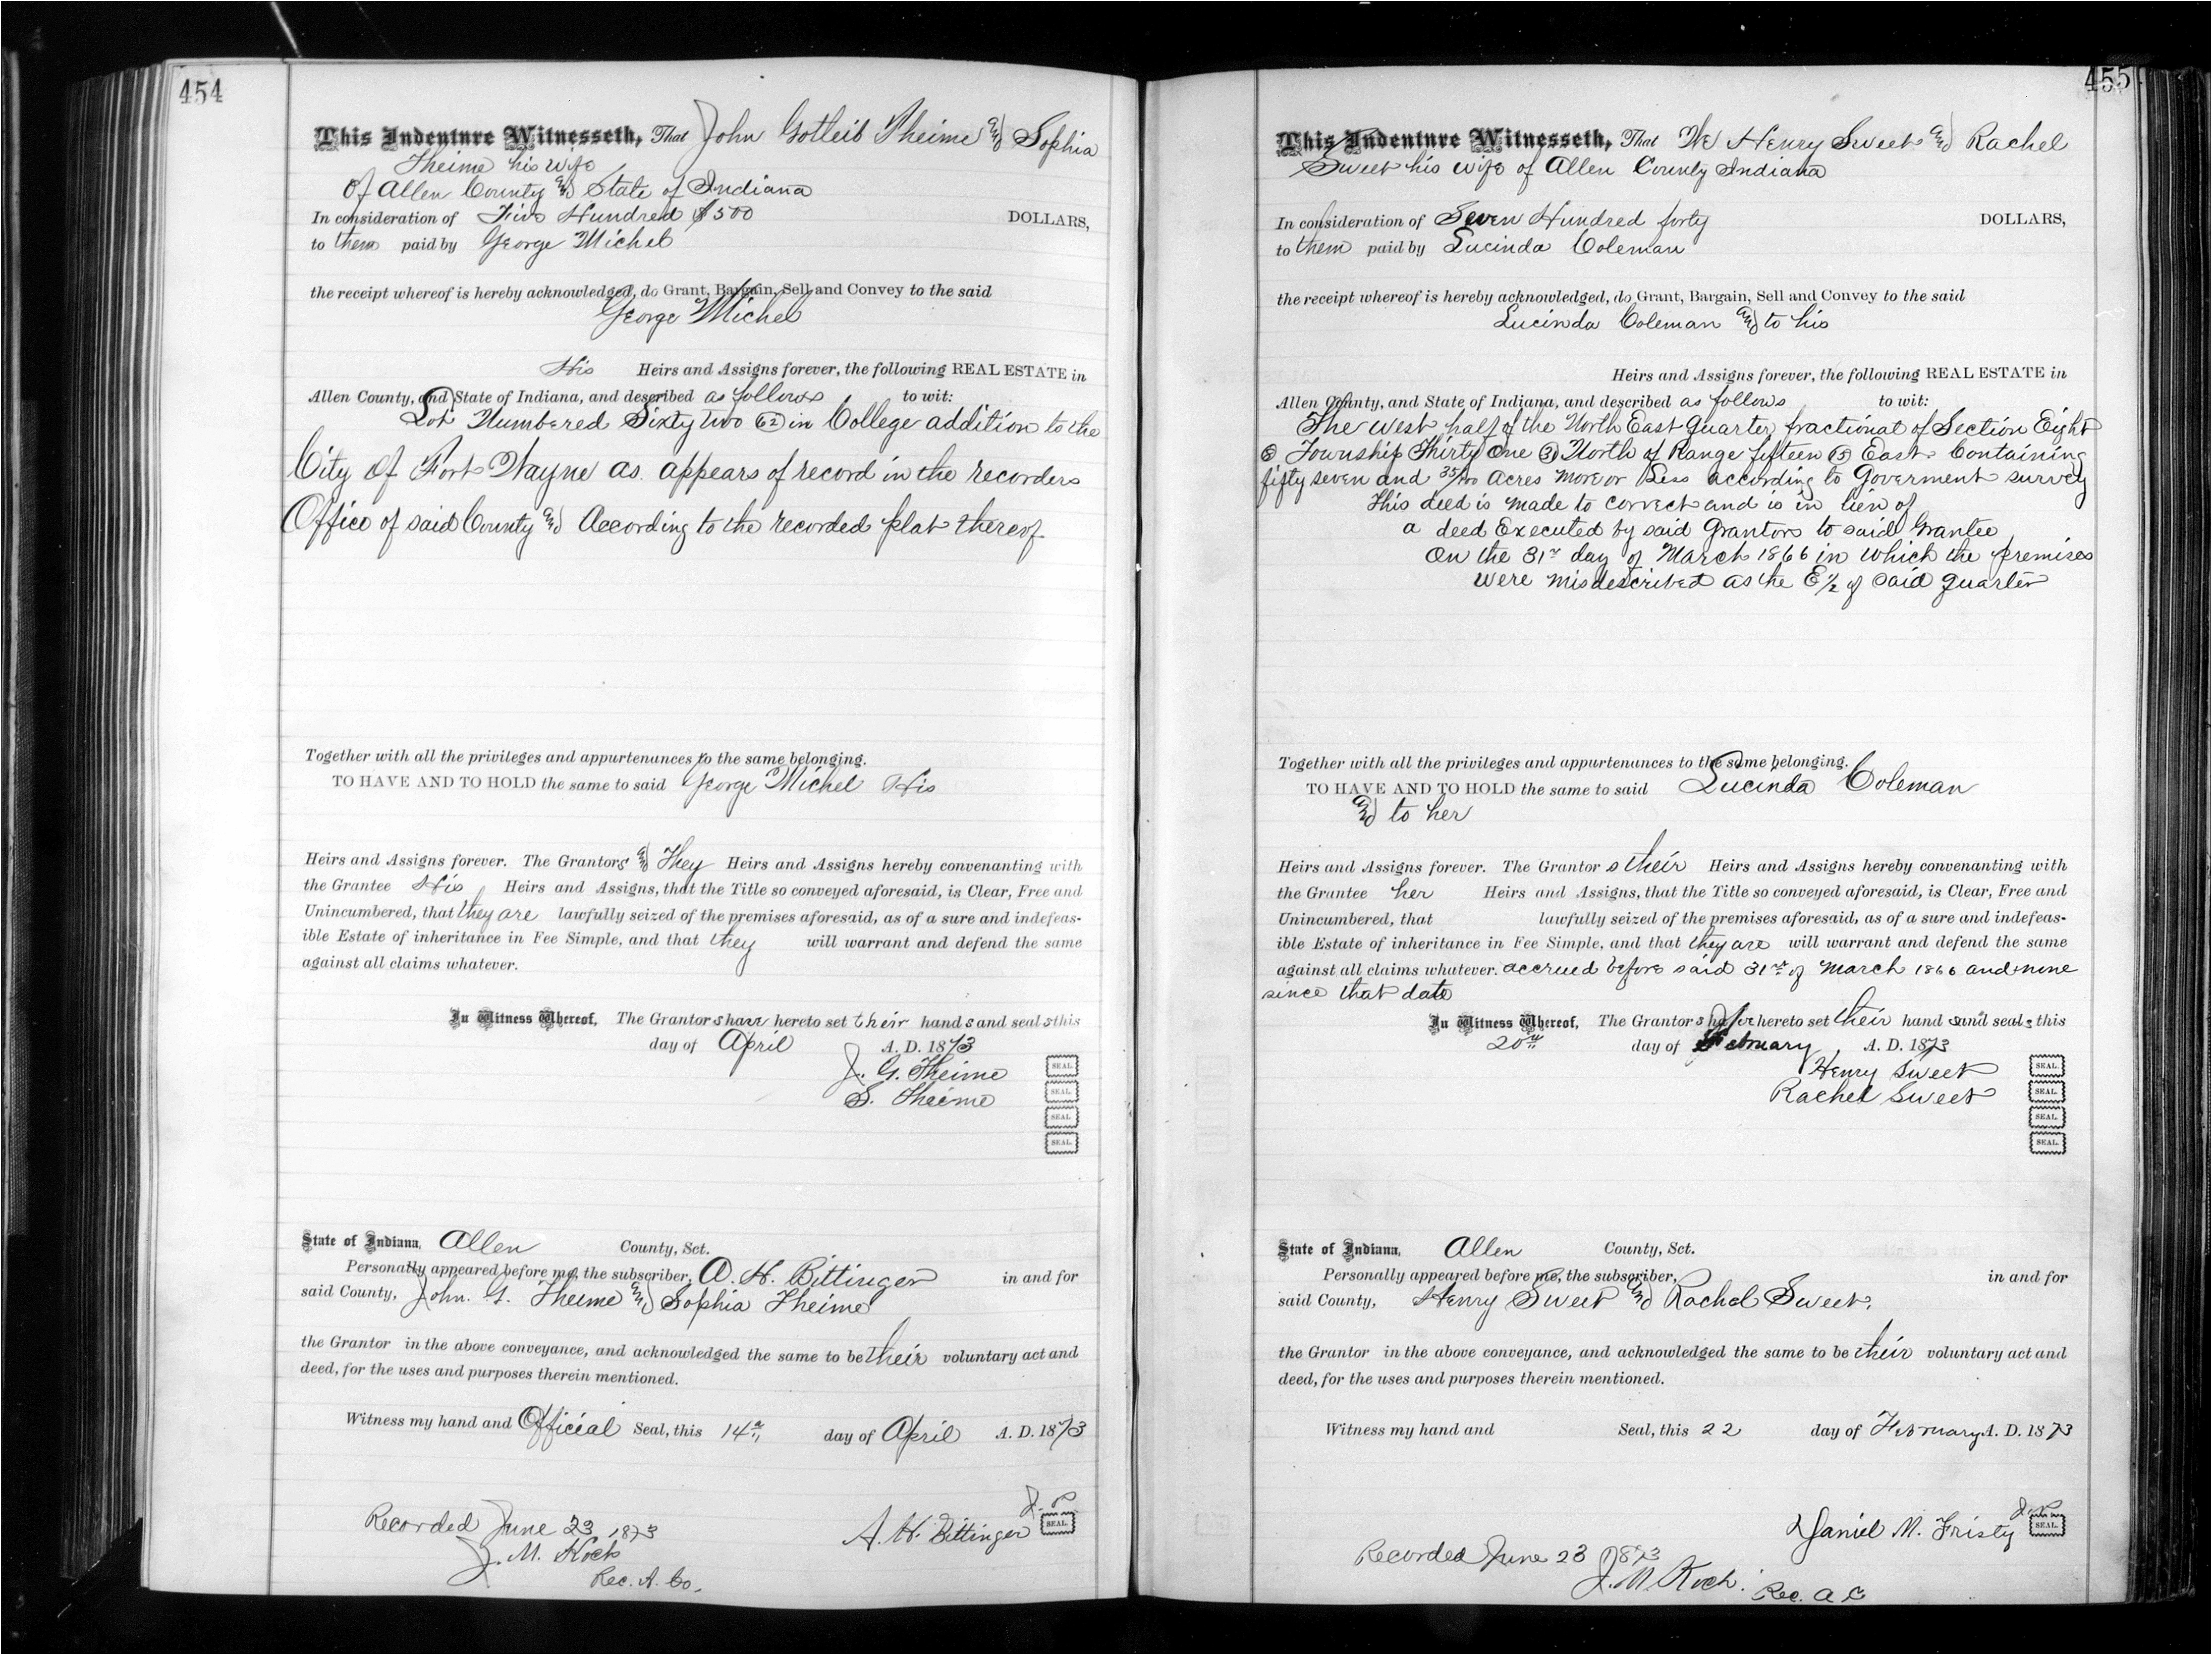 454
This Indenture Witnesseth, That John Gotleib Theime and Sophia
Theime his wife
Of Allen County and State of Indiana
In consideration of Five Hundred $500 DOLLARS,
to them paid by George Michel
the receipt whereof is hereby acknowledged, do Grant, Bargain, Sell and Convey to the said
George Michel
His Heirs and Assigns forever, the following REAL ESTATE in
Allen County, and State of Indiana, and described as follows to wit:
Lot Numbered Sixty two 62 in College addition to the
City of Fort Wayne as appears of record in the recorders
Office of said County and According to the recorded plat thereof
Together with all the privileges and appurtenances to the same belonging.
TO HAVE AND TO HOLD the same to said George Michel His
Heirs and Assigns forever. The Grantors and They Heirs and Assigns hereby convenanting with
the Grantee His Heirs and Assigns, that the Title so conveyed aforesaid, is Clear, Free and
Unincumbered, that they are lawfully seized of the premises aforesaid, as of a sure and indefeas-
ible Estate of inheritance in Fee Simple, and that they will warrant and defend the same
against all claims whatever.
In Witness Whereof, The Grantors have hereto set their hands and seals this
day of April A. D. 1873
J. G. Theime SEAL.
S. Theime SEAL.
SEAL.
SEAL.
State of Indiana, Allen County, Sct.
Personally appeared before me, the subscriber, A. H. Bittinger in and for
said County, John. G. Theime and Sophia Theime
the Grantor in the above conveyance, and acknowledged the same to be their voluntary act and
deed, for the uses and purposes therein mentioned.
Witness my hand and Official Seal, this 14th day of April A. D. 1873
A. H. Bittinger J. P. SEAL.
Recorded June 23 1873
J. M. Koch
Rec. A. Co.
455
This Indenture Witnesseth, That We Henry Sweet and Rachel
Sweet his wife of Allen County Indiana
In consideration of Seven Hundred forty DOLLARS,
to them paid by Lucinda Coleman
the receipt whereof is hereby acknowledged, do Grant, Bargain, Sell and Convey to the said
Lucinda Coleman and to his
Heirs and Assigns forever, the following REAL ESTATE in
Allen County, and State of Indiana, and described as follows to wit:
The west half of the North East Quarter fractional of Section Eight
8 Township Thirty One 31 North of Range fifteen 15 East Containing
fifty seven and 35/100 Acres more or Less according to Goverment survey
This deed is made to correct and is in lien of
a deed Executed by said Grantors to said Grantee
On the 31st day of March 1866 in which the premises
were misdescribed as the E 1/2 of said quarter
Together with all the privileges and appurtenances to the same belonging.
TO HAVE AND TO HOLD the same to said Lucinda Coleman
and to her
Heirs and Assigns forever. The Grantor s their Heirs and Assigns hereby convenanting with
the Grantee her Heirs and Assigns, that the Title so conveyed aforesaid, is Clear, Free and
Unincumbered, that lawfully seized of the premises aforesaid, as of a sure and indefeas-
ible Estate of inheritance in Fee Simple, and that they are will warrant and defend the same
against all claims whatever. accrued before said 31st of March 1866 and none
since that date
In Witness Whereof, The Grantors have hereto set their hand s and seals this
20th day of February A. D. 1873
Henry Sweet SEAL.
Rachel Sweet SEAL.
SEAL.
SEAL.
State of Indiana, Allen County, Sct.
Personally appeared before me, the subscriber, in and for
said County, Henry Sweet and Rachel Sweet,
the Grantor in the above conveyance, and acknowledged the same to be their voluntary act and
deed, for the uses and purposes therein mentioned.
Witness my hand and Seal, this 22 day of February A. D. 1873
Daniel M. Fristy J. P. SEAL.
Recorded June 23 1873
J. M. Koch.
Rec. A C